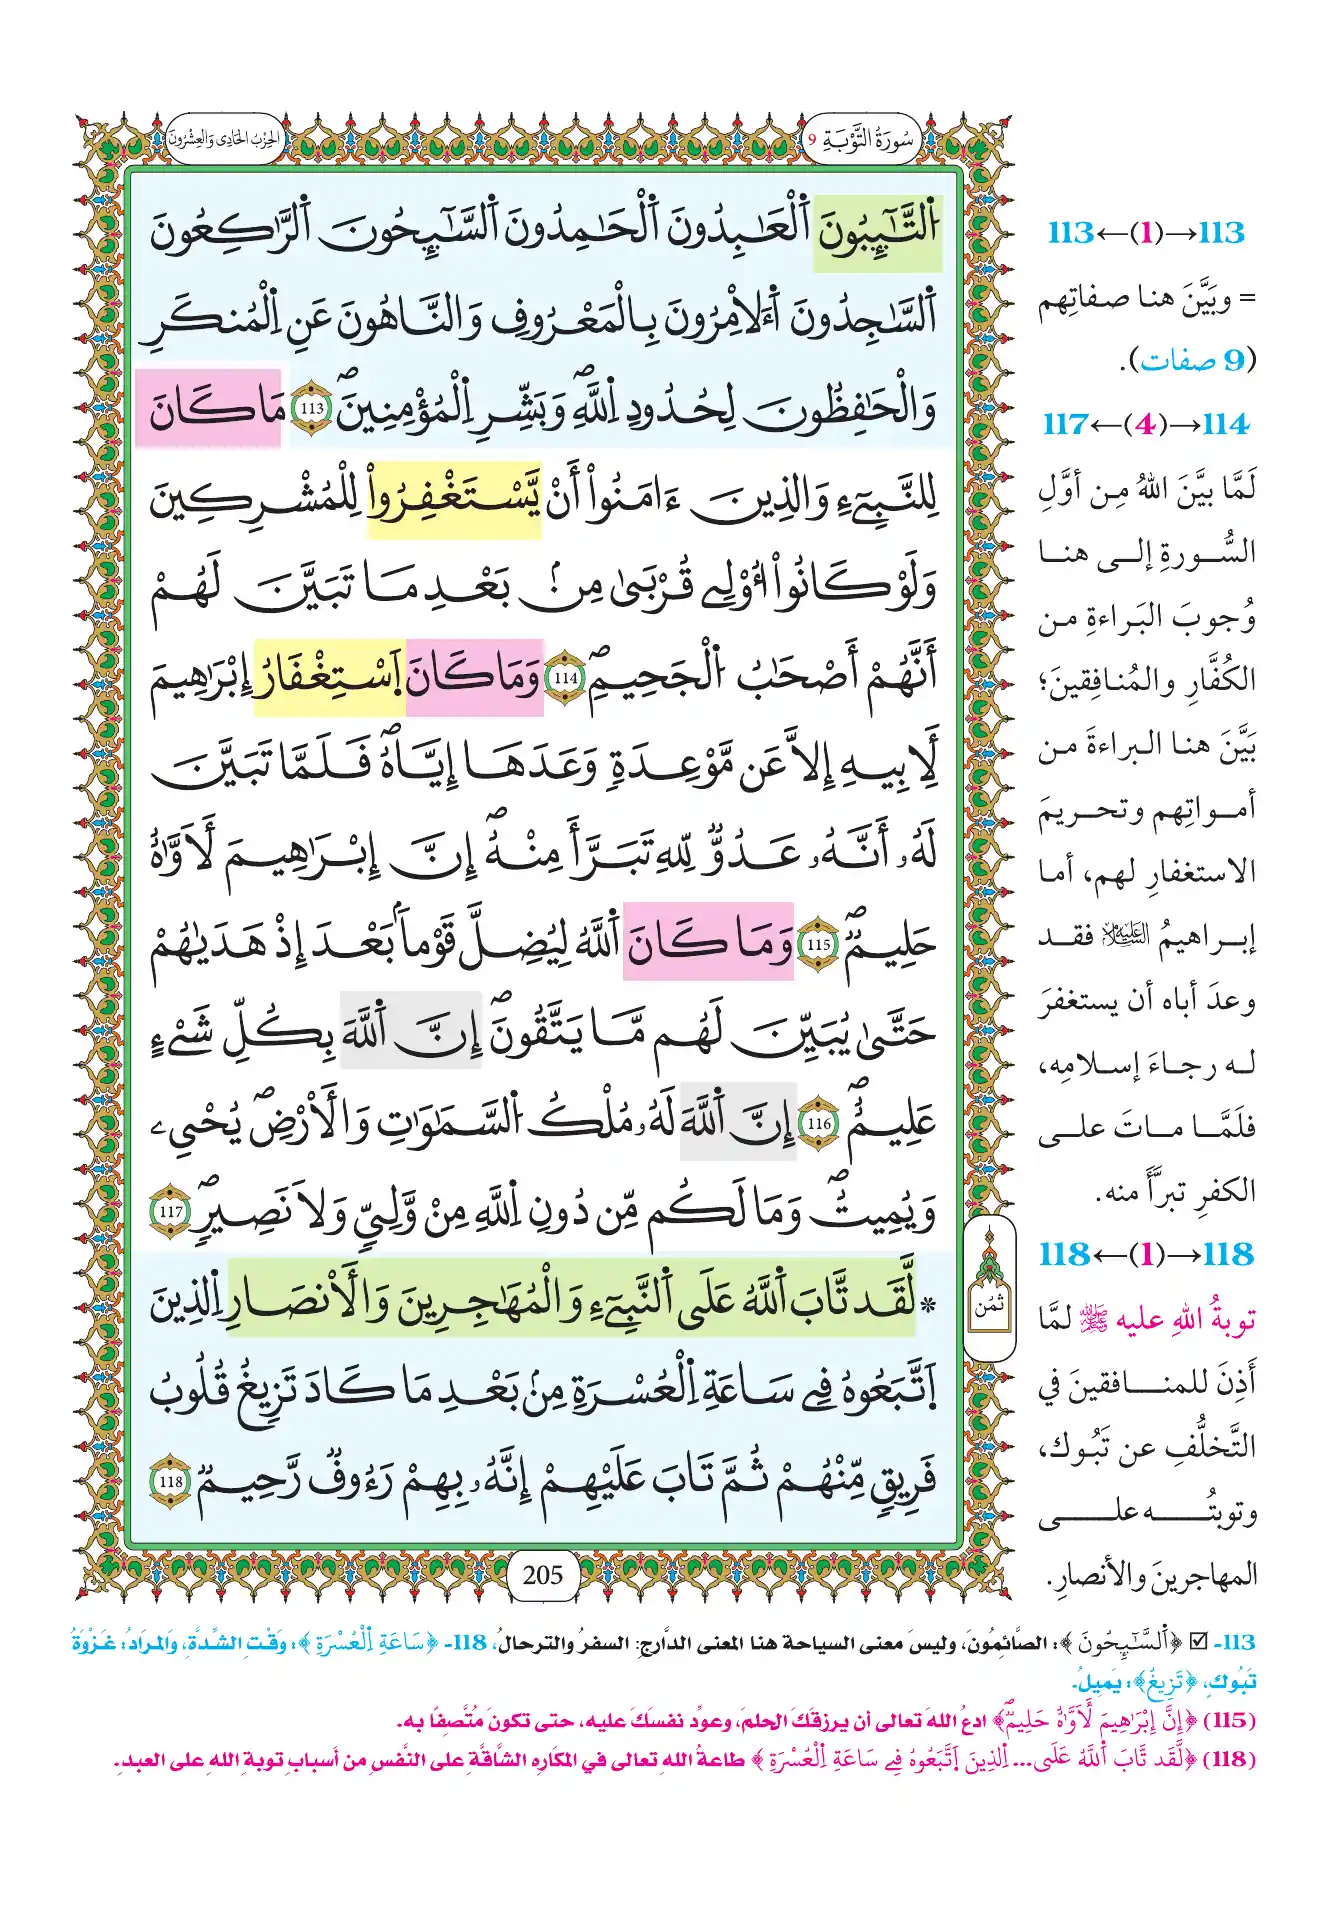 سُورَةُ التَّوْبَةِ 9
الحِزْبُ الحَادِي وَالعِشْرُونَ
اَ۬لتَّٰٓئِبُونَ اَ۬لْعَٰبِدُونَ اَ۬لْحَٰمِدُونَ اَ۬لسَّٰٓئِحُونَ اَ۬لرَّٰكِعُونَ
اَ۬لسَّٰجِدُونَ اَ۬لَامِرُونَ بِالْمَعْرُوفِ وَالنَّاهُونَ عَنِ اِ۬لْمُنكَرِ
وَالْحَٰفِظُونَ لِحُدُودِ اِ۬للَّهِۖ وَبَشِّرِ اِ۬لْمُؤْمِنِينَۖ 113 مَا كَانَ
لِلنَّبِيٓءِ وَالذِينَ ءَامَنُواْ أَنْ يَّسْتَغْفِرُواْ لِلْمُشْرِكِينَ
وَلَوْ كَانُوٓاْ أُوْلِے قُرْبَىٰ مِنۢ بَعْدِ مَا تَبَيَّنَ لَهُمُۥٓ
أَنَّهُمُۥٓ أَصْحَٰبُ اُ۬لْجَحِيمِۖ 114 وَمَا كَانَ اَ۪سْتِغْفَارُ إِبْرَٰهِيمَ
لَأبِيهِ إِلاَّ عَن مَّوْعِدَةٖ وَعَدَهَا إِيَّاهُۖ فَلَمَّا تَبَيَّنَ
لَهُۥ أَنَّهُۥ عَدُوّٞ لِّلهِ تَبَرَّأَ مِنْهُۖ إِنَّ إِبْرَٰهِيمَ لَأَوَّٰهٌ
حَلِيمٞۖ 115 وَمَا كَانَ اَ۬للَّهُ لِيُضِلَّ قَوْماَۢ بَعْدَ إِذْ هَدَيٰهُمْ
حَتَّىٰ يُبَيِّنَ لَهُم مَّا يَتَّقُونَۖ إِنَّ اَ۬للَّهَ بِكُلِّ شَےْءٍ
عَلِيمٌۖ 116 إِنَّ اَ۬للَّهَ لَهُۥ مُلْكُ اُ۬لسَّمَٰوَٰتِ وَالَارْضِۖ يُحْيِۦ
وَيُمِيتُۖ وَمَا لَكُم مِّن دُونِ اِ۬للَّهِ مِنْ وَّلِيّٖ وَلَا نَصِيرٖۖ 117
* لَّقَد تَّابَ اَ۬للَّهُ عَلَى اَ۬لنَّبِيٓءِ وَالْمُهَٰجِرِينَ وَالَانصَارِ اِ۬لذِينَ
اَ۪تَّبَعُوهُ فِے سَاعَةِ اِ۬لْعُسْرَةِ مِنۢ بَعْدِ مَا كَادَ تَزِيغُ قُلُوبُ
فَرِيقٖ مِّنْهُمْ ثُمَّ تَابَ عَلَيْهِمُۥٓ إِنَّهُۥ بِهِمْ رَءُوفٞ رَّحِيمٞ 118
ثُمُن
205
113←(1)→113
= وبَيَّنَ هنا صفاتِهم
(9 صفات).
117←(4)→114
لَمَّا بيَّنَ اللهُ مِن أوَّلِ
السُّورةِ إلى هنا
وُجوبَ البَراءةِ من
الكُفَّارِ والمُنافِقينَ؛
بَيَّنَ هنا البراءةَ من
أمواتِهم وتحريمَ
الاستغفارِ لهم، أما
إبراهيمُ عليه السلام فقد
وعدَ أباه أن يستغفرَ
له رجاءَ إسلامِه،
فلَمَّا ماتَ على
الكفرِ تبرَّأَ منه.
118←(1)→118
توبةُ اللهِ عليه ﷺ لمَّا
أَذِنَ للمنافقينَ في
التَّخلُّفِ عن تَبُوك،
وتوبتُه على
المهاجرينَ والأنصارِ.
113- ☑ ﴿اَ۬لسَّٰٓئِحُونَ﴾: الصَّائِمُونَ، وليسَ معنى السياحة هنا المعنى الدَّارج: السفرُ والترحالُ، 118- ﴿سَاعَةِ اِ۬لْعُسْرَةِ﴾: وَقْتِ الشِّدَّةِ، وَالمرَادُ: غَزْوَةُ
تَبُوكٍ، ﴿تَزِيغُ﴾: يَمِيلُ.
(115) ﴿إِنَّ إِبْرَٰهِيمَ لَأَوَّٰهٌ حَلِيمٞۖ﴾ ادعُ اللهَ تعالى أن يرزقَكَ الحلمَ، وعوِّد نفسَكَ عليه، حتى تكونَ مُتَّصِفًا به.
(118) ﴿لَّقَد تَّابَ اَ۬للَّهُ عَلَى... اِ۬لذِينَ اَ۪تَّبَعُوهُ فِے سَاعَةِ اِ۬لْعُسْرَةِ﴾ طاعةُ اللهِ تعالى في المكَارِه الشَّاقَّةِ على النَّفسِ من أسبابِ توبةِ اللهِ على العبدِ.